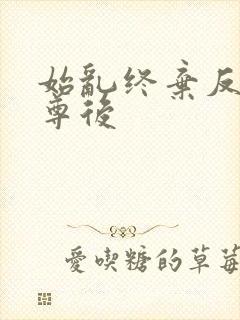 始亂终棄反
尊後
愛喫糖的草莓